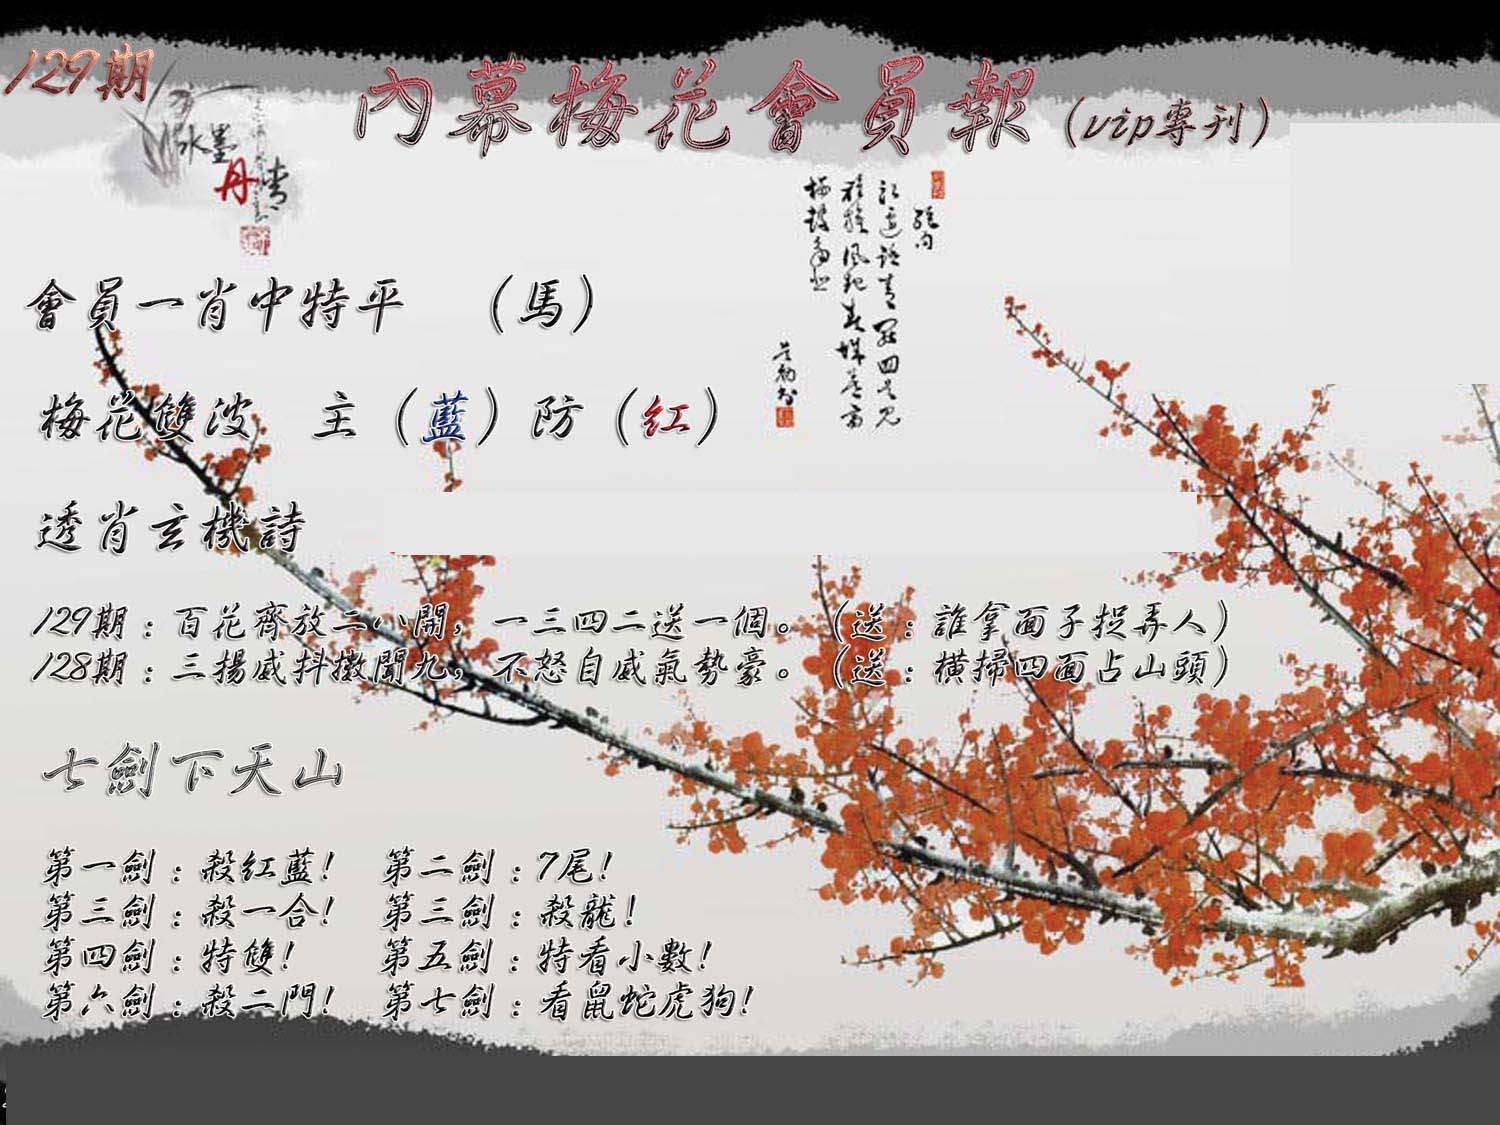 129期
內幕梅花會員報（vip專刊）
水墨
丹青
會員一肖中特平　（馬）
梅花雙波　主（藍）防（紅）
透肖玄機詩
129期：百花齊放二八開，一三四二送一個。（送：誰拿面子捉弄人）
128期：三揚威抖擻聞九，不怒自威氣勢豪。（送：橫掃四面占山頭）
七劍下天山
第一劍：殺紅藍！　第二劍：7尾！
第三劍：殺一合！　第三劍：殺龍！
第四劍：特雙！　第五劍：特看小數！
第六劍：殺二門！　第七劍：看鼠蛇虎狗！